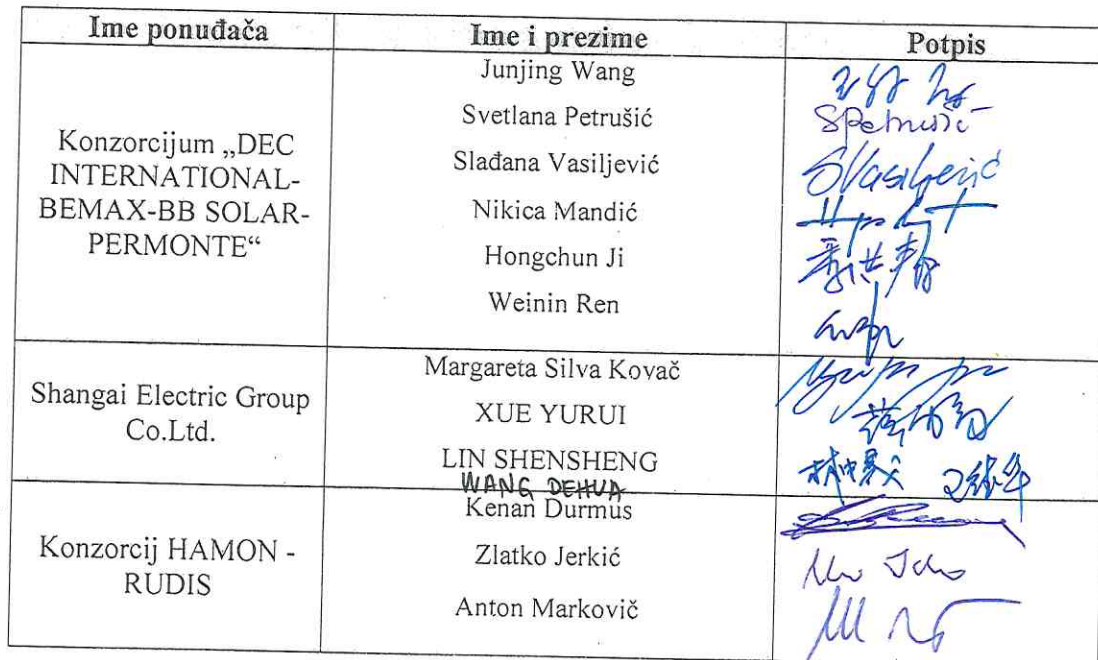 Ime ponuđača Ime i prezime Potpis
Konzorcijum „DEC
INTERNATIONAL-
BEMAX-BB SOLAR-
PERMONTE“
Junjing Wang
Svetlana Petrušić
SPetrušić
Slađana Vasiljević
SVasiljević
Nikica Mandić
Hongchun Ji
季洪春
Weinin Ren
Shangai Electric Group
Co.Ltd.
Margareta Silva Kovač
XUE YURUI
LIN SHENSHENG
WANG DEHUA
Konzorcij HAMON -
RUDIS
Kenan Durmus
Zlatko Jerkić
Anton Markovič